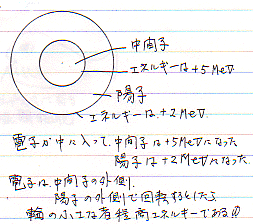 中間子
エネルギーは+5MeV
陽子
エネルギーは+2MeV.
電子が中に入って、中間子は+5MeVになった
陽子は+2MeVになった.
電子は、中間子の外側、
陽子の外側で回転するとしたら
輪の小さな方程高エネルギーである